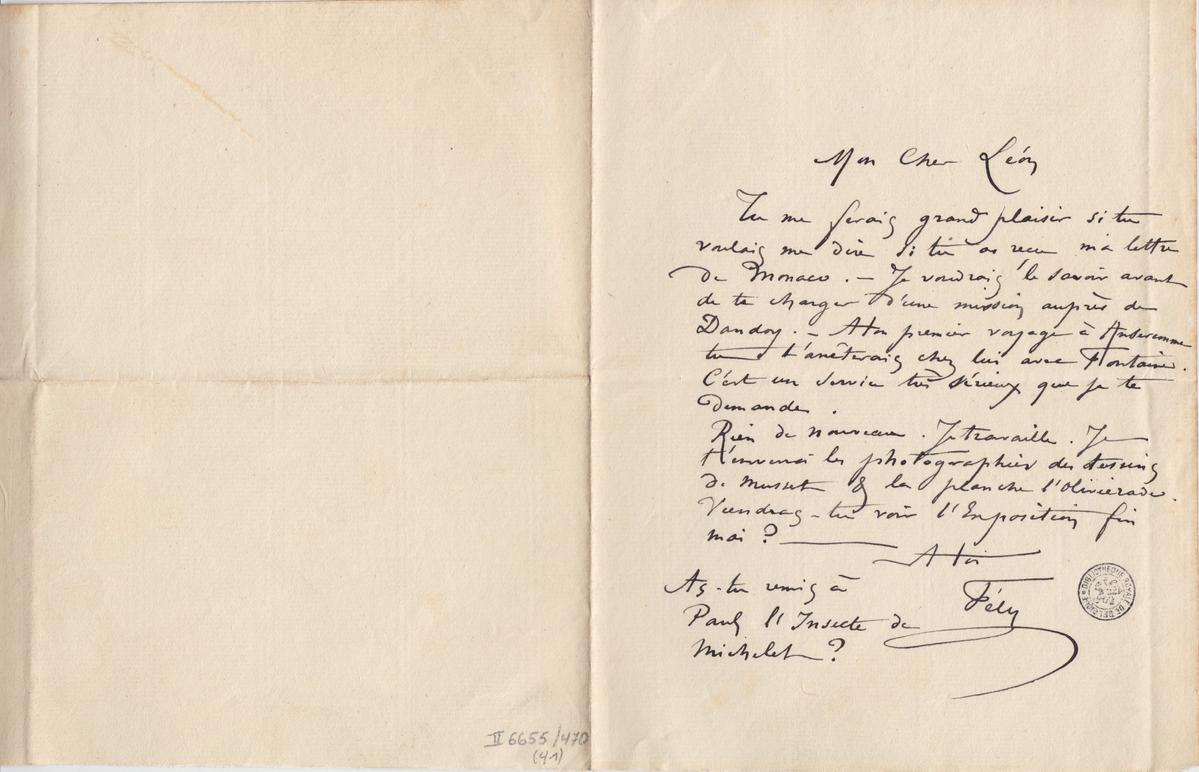 Mon Cher Léon
Tu me ferais grand plaisir si tu
voulais me dire si tu as reçu ma lettre
de Monaco. – Je voudrais le savoir avant
de te charger d'une mission auprès de
Dandoy. – A ton premier voyage à Anseremme
tu t'arrêterais chez lui avec Fontaine.
C'est un service très sérieux que je te
demande.
Rien de nouveau. Je travaille. Je
t'enverrai les photographies des dessins
de Musset & la planche l'Olivierade.
Viendras-tu voir l'Exposition fin
mai ?
A toi
Fély
As-tu remis à
Paul l'Insecte de
Michelet ?
BIBLIOTHÈQUE ROYALE DE BELGIQUE
II 6655/470
(41)